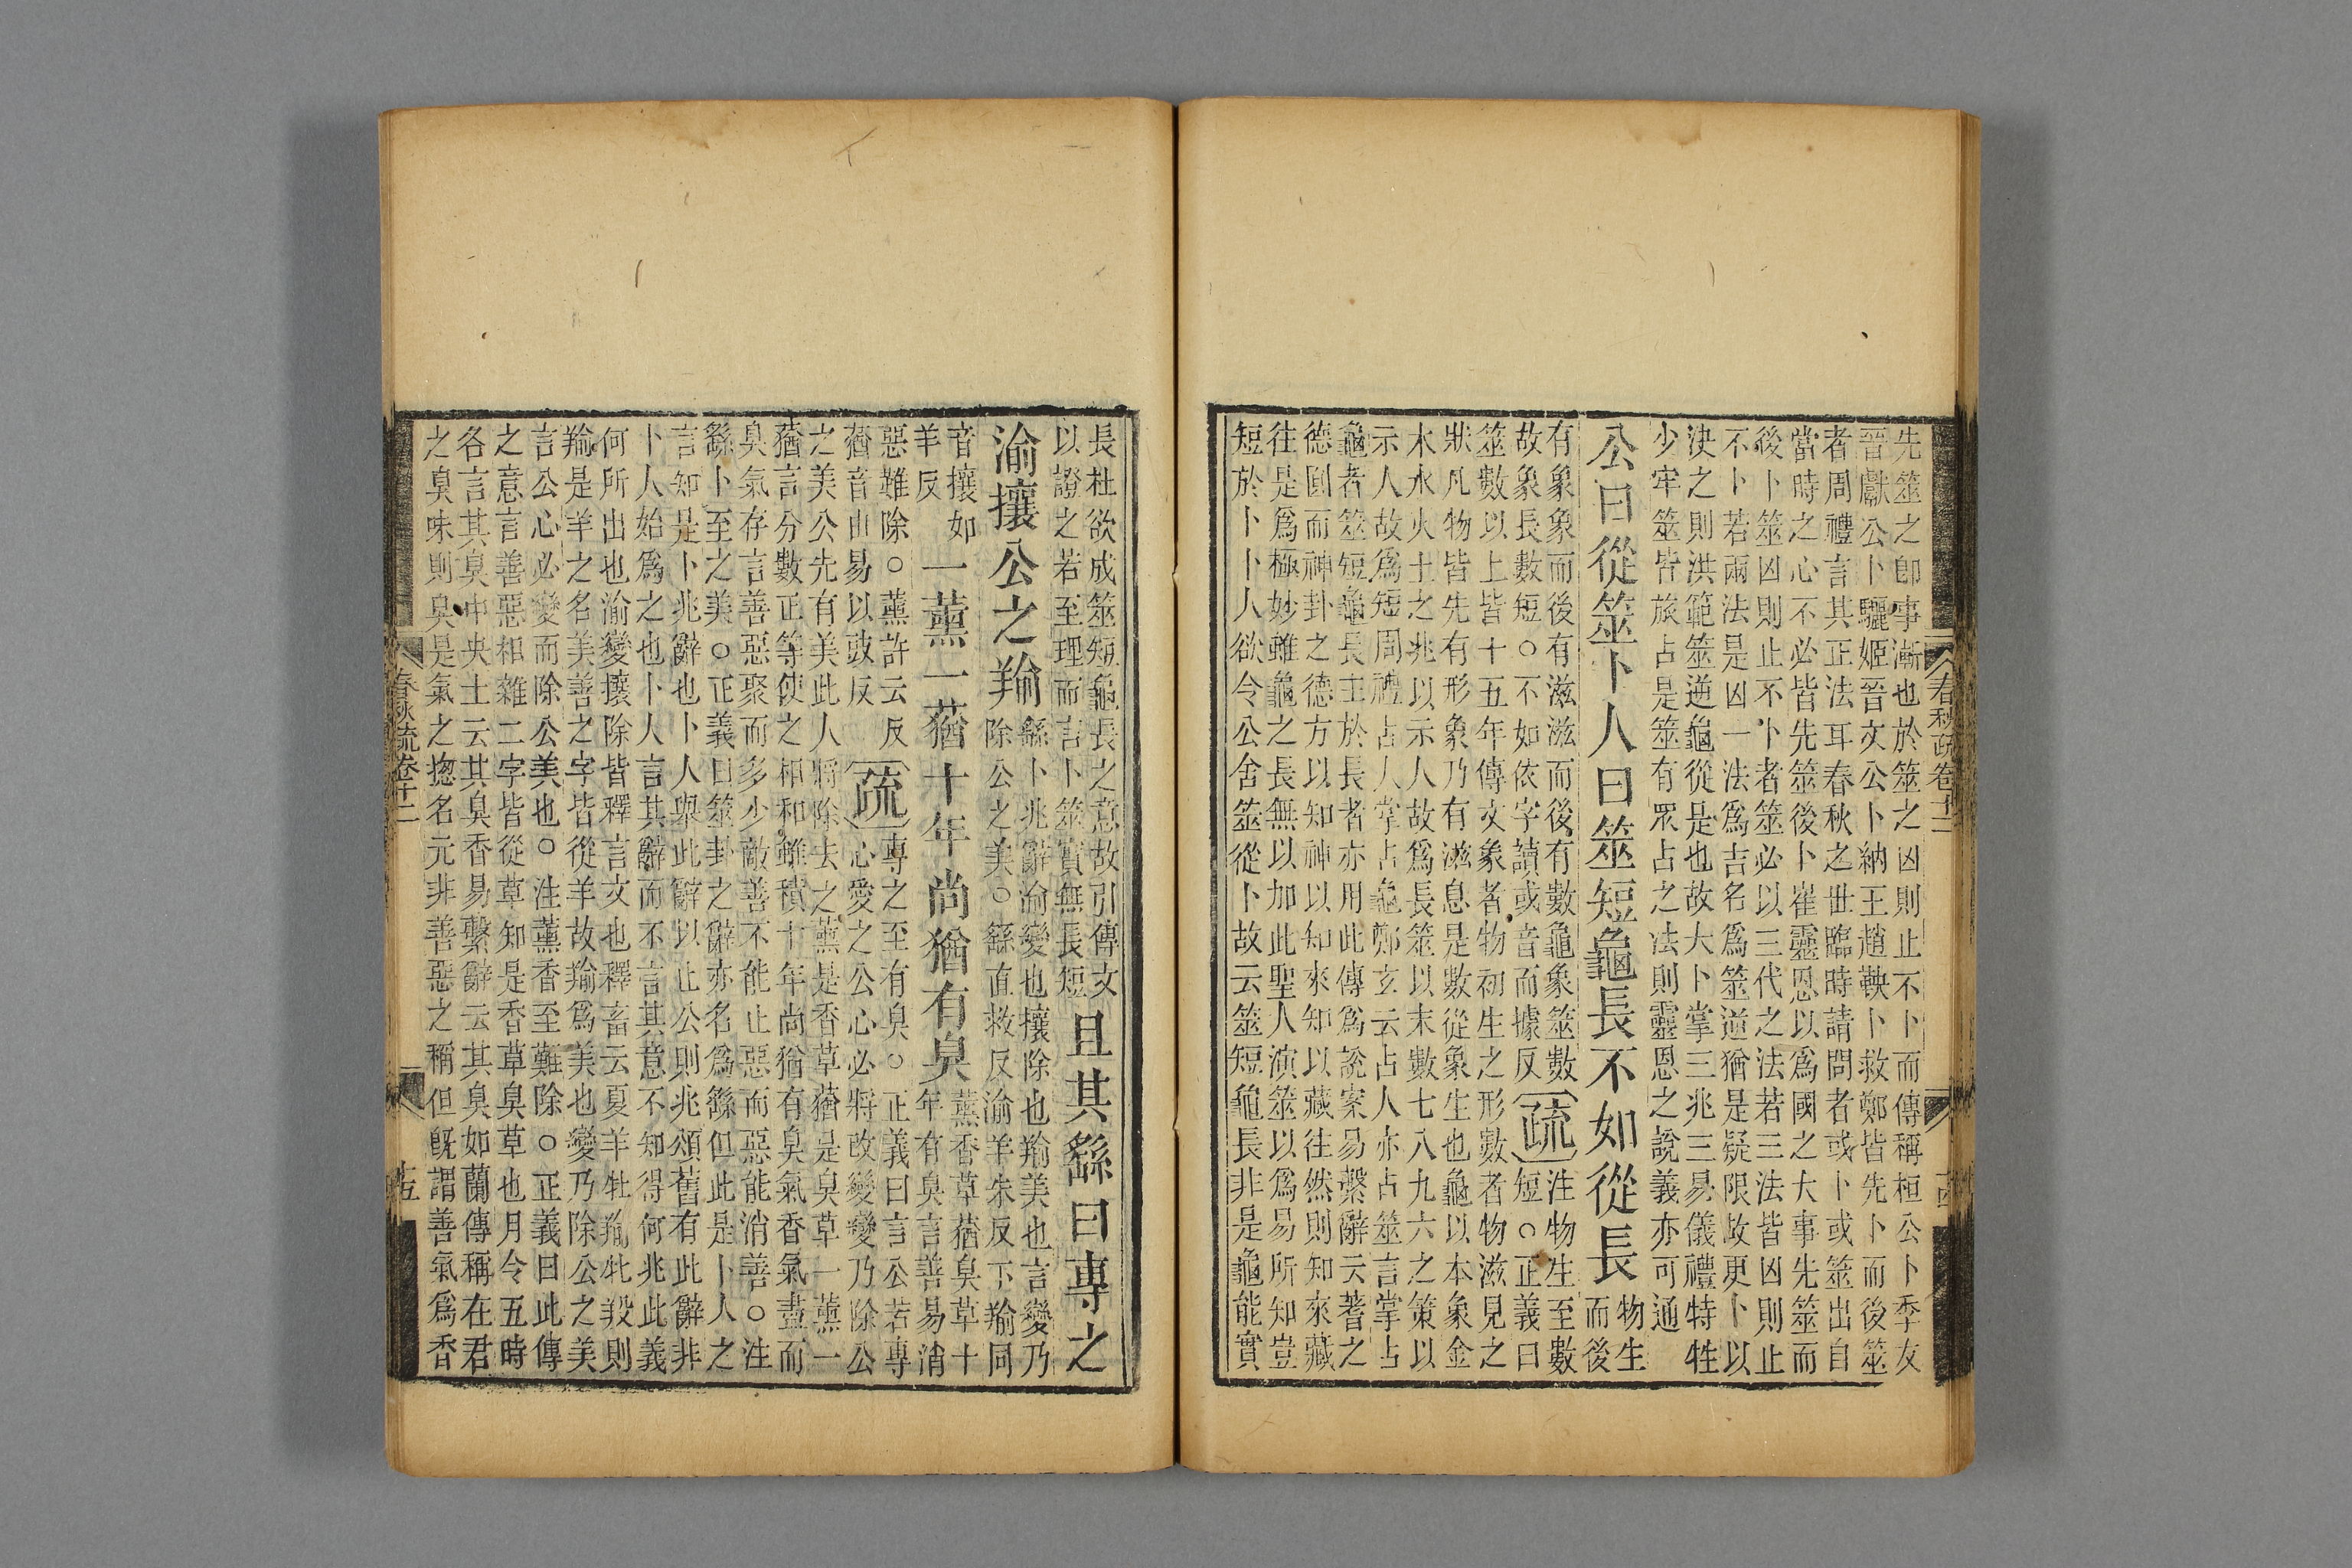 先筮之卽事漸也於筮之凶則止不卜而傳稱桓公卜季友
晉獻公卜驪姬晉文公卜納王趙鞅卜救鄭皆先卜而後筮
者周禮言其正法耳春秋之世臨時請問者或卜或筮出自
當時之心不必皆先筮後卜崔靈恩以爲國之大事先筮而
後卜筮凶則止不卜者筮必以三代之法若三法皆凶則止
不卜若兩法是凶一法爲吉名爲筮逆猶是疑限故更卜以
決之則洪範筮逆龜從是也故大卜掌三兆三易儀禮特牲
少牢筮皆旅占是筮有眾占之法則靈恩之說義亦可通
公曰從筮卜人曰筮短龜長不如從長
物生
而後
有象象而後有滋滋而後有數龜象筮數
故象長數短○不如依字讀或音而據反
疏
注物生至數
短○正義曰
筮數以上皆十五年傳文象者物初生之形數者物滋見之
狀凡物皆先有形象乃有滋息是數從象生也龜以本象金
木水火土之兆以示人故爲長筮以末數七八九六之策以
示人故爲短周禮占人掌占龜鄭玄云占人亦占筮言掌占
龜者筮短龜長主於長者亦用此傳爲說案易繫辭云蓍之
德圓而神卦之德方以知神以知來知以藏往然則知來藏
往是爲極妙雖龜之長無以加此聖人演筮以爲易所知豈
短於卜卜人欲令公舍筮從卜故云筮短龜長非是龜能實
春秋疏卷十二
十四
長杜欲成筮短龜長之意故引傳文
以證之若至理而言卜筮實無長短
且其繇曰專之
渝攘公之羭
繇卜兆辭渝變也攘除也羭美也言變乃
除公之美○繇直救反渝羊朱反下羭同
音攘如
羊反
一薰一蕕十年尚猶有臭
薰香草蕕臭草十
年有臭言善易消
惡雖除○薰許云反
蕕音由易以豉反
疏
專之至有臭○正義曰言公若專
心愛之公心必將改變變乃除公
之美公先有美此人將除去之薰是香草蕕是臭草一薰一
蕕言分數正等使之相和雖積十年尚猶有臭氣香氣盡而
臭氣存言善惡聚而多少敵善不能止惡而惡能消善○注
繇卜至之美○正義曰筮卦之辭亦名爲繇但此是卜人之
言知是卜兆辭也卜人舉此辭以止公則兆頌舊有此辭非
卜人始爲之也卜人言其辭而不言其意不知得何兆此義
何所出也渝變攘除皆釋言文也釋畜云夏羊牡羭牝羖則
羭是羊之名美善之字皆從羊故羭爲美也變乃除公之美
言公心必變而除公美也○注薰香至難除○正義曰此傳
之意言善惡相雜二字皆從草知是香草臭草也月令五時
各言其臭中央土云其臭香易繫辭云其臭如蘭傳稱在君
之臭味則臭是氣之揔名元非善惡之稱但旣謂善氣爲香
春秋疏卷十二
十五